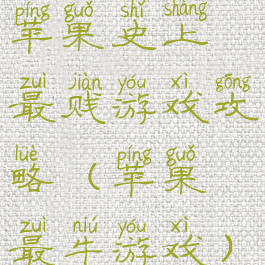 píng guǒ shǐ shàng
苹果史上
zuì jiàn yóu xì gōng
最贱游戏攻
luè píng guǒ
略（苹果
zuì niú yóu xì
最牛游戏）